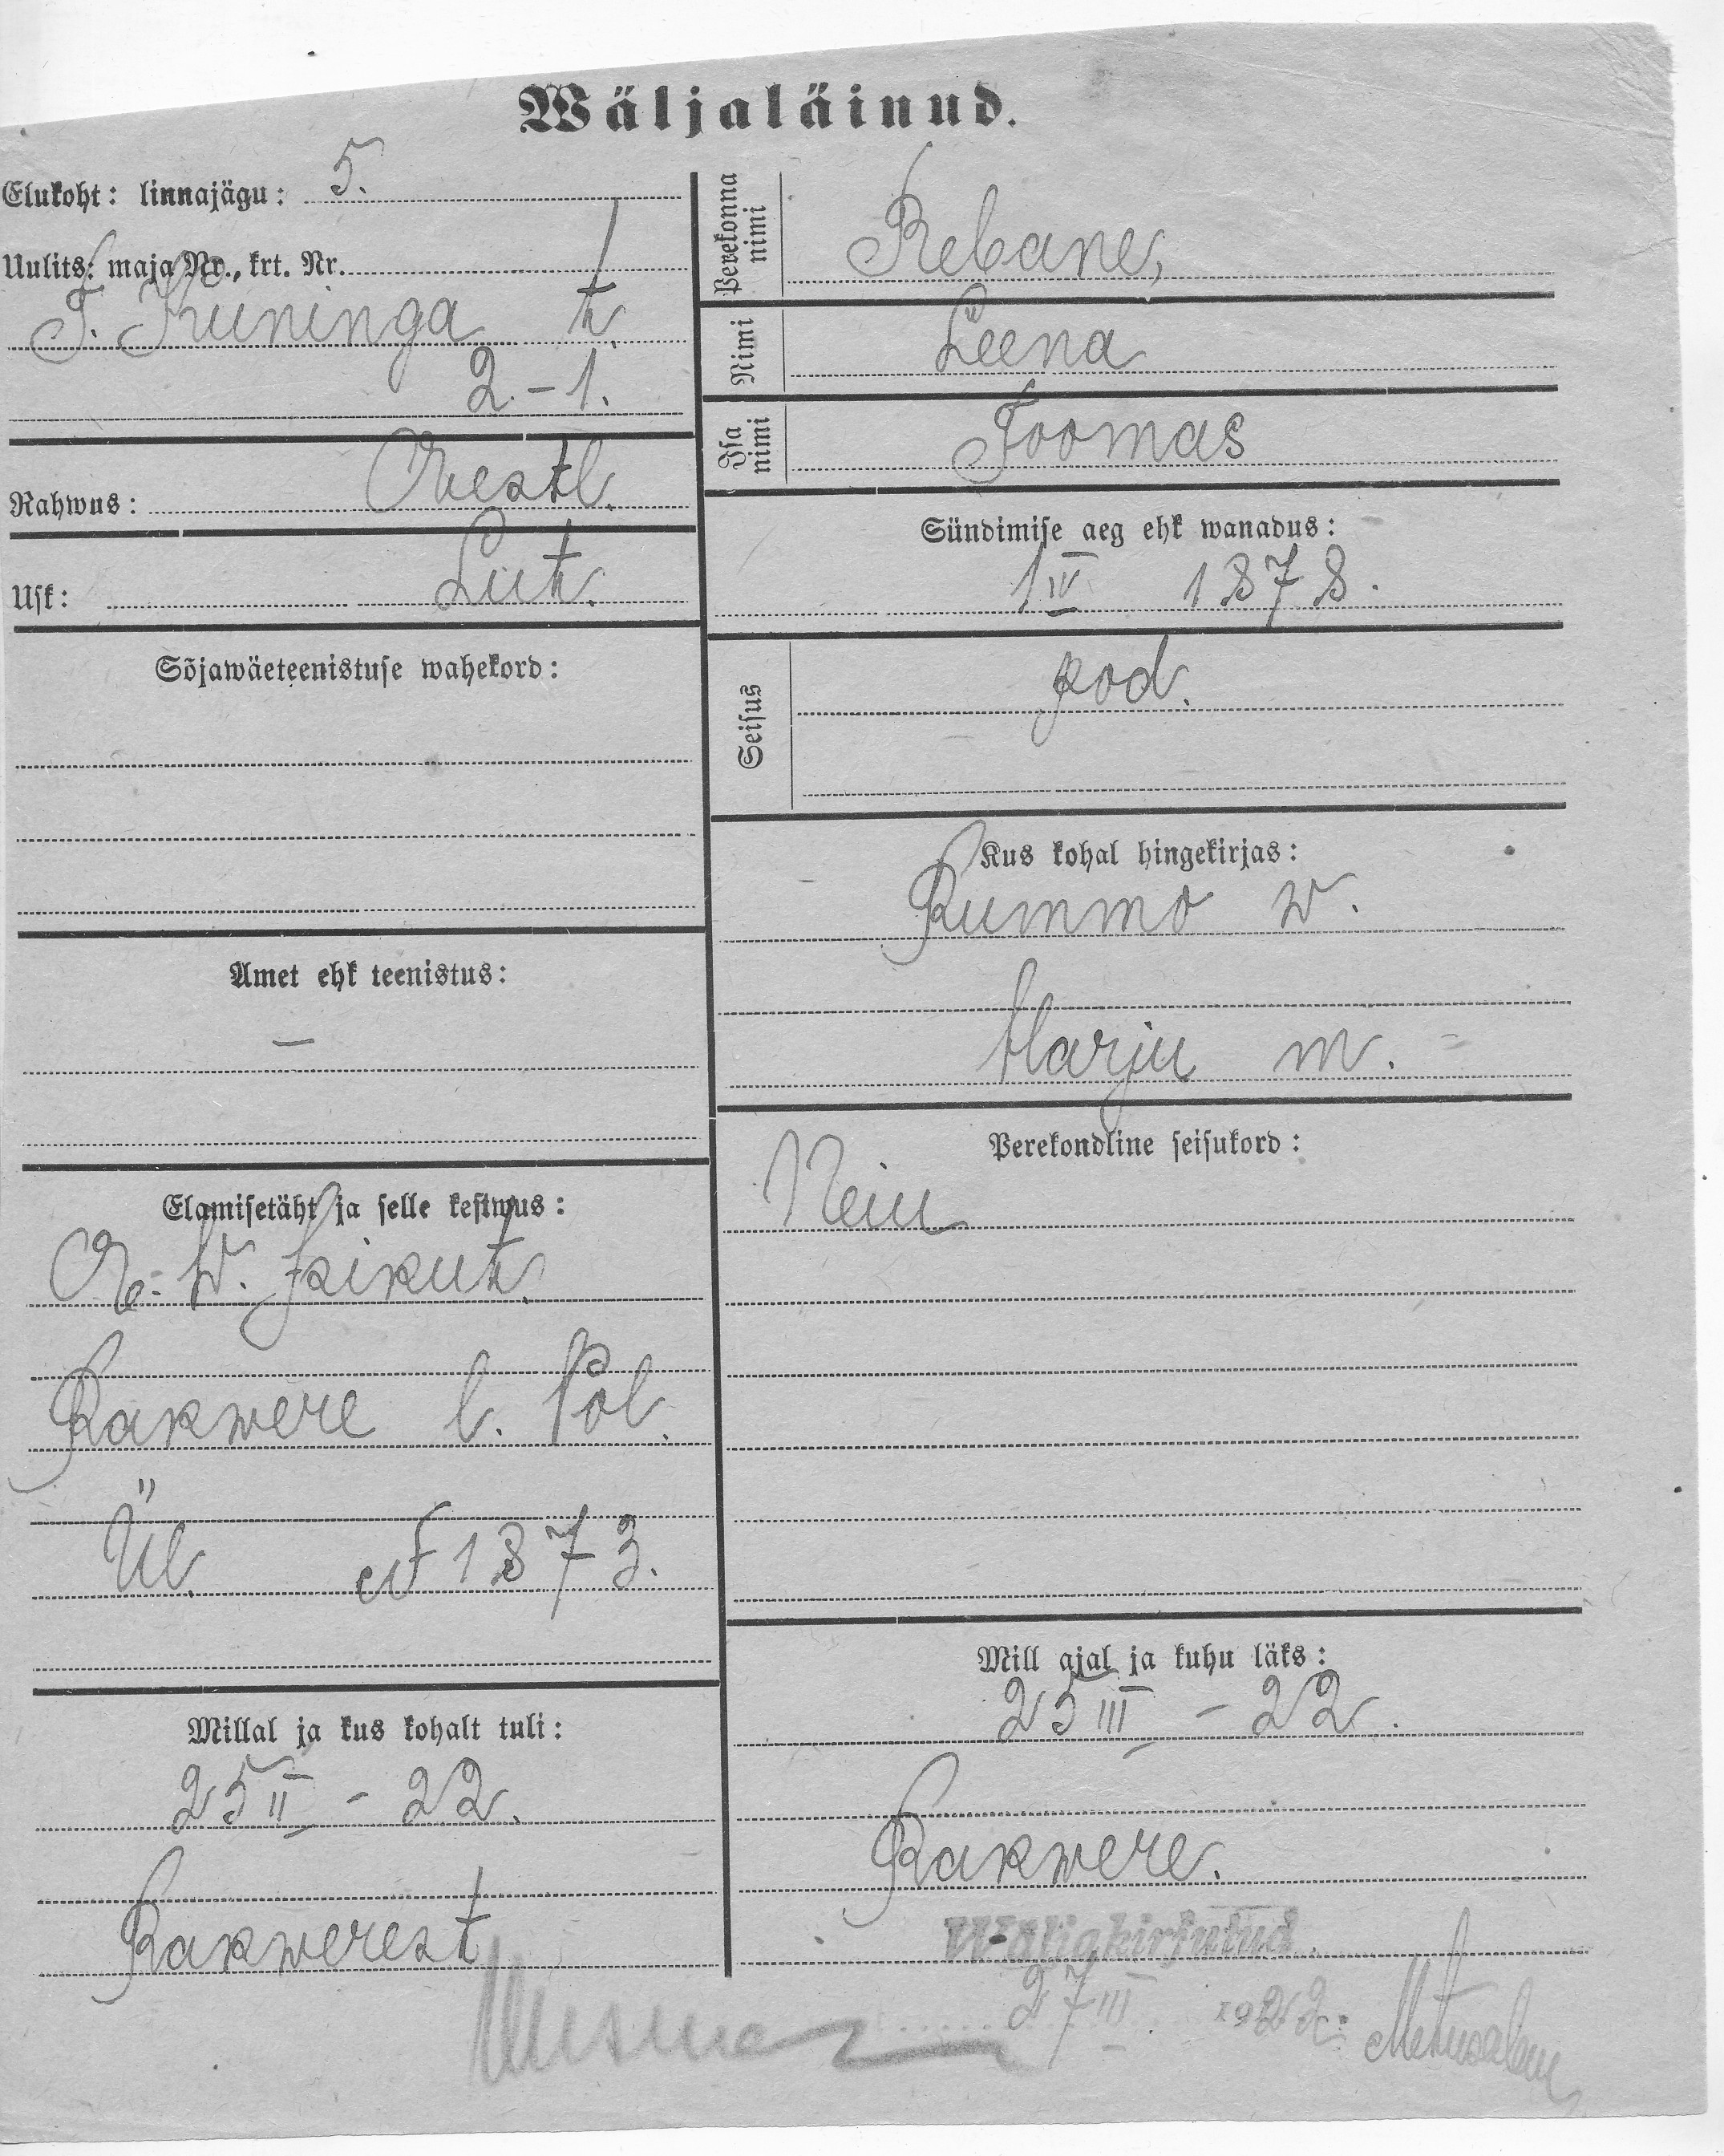 Wäljaläinud.
Elukoht: linnajägu: 5.
Uulits: maja Nr., krt. Nr.
T. Kuninga t.
2-1.
Rahwus: Eestl.
Usk: Lut.
Sõjawäeteenistuse wahekord:
Amet ehk teenistus:
—
Elamisetäht ja selle kestwus:
E. W. isikut.
Rakwere l. Pol.
Ül. № 1873.
Millal ja kus kohalt tuli:
25 II - 22.
Rakwerest
Perekonna nimi
Rebane,
Nimi
Leena
Isa nimi
Toomas
Sündimise aeg ehk wanadus:
1 IV 1878.
Seisus
kod.
Kus kohal hingekirjas:
Kummo w.
Harju m.
Perekondline seisukord:
Neiu
Mill ajal ja kuhu läks:
25 III - 22.
Rakwere.
Wäljakirjutud
27 III 1922.